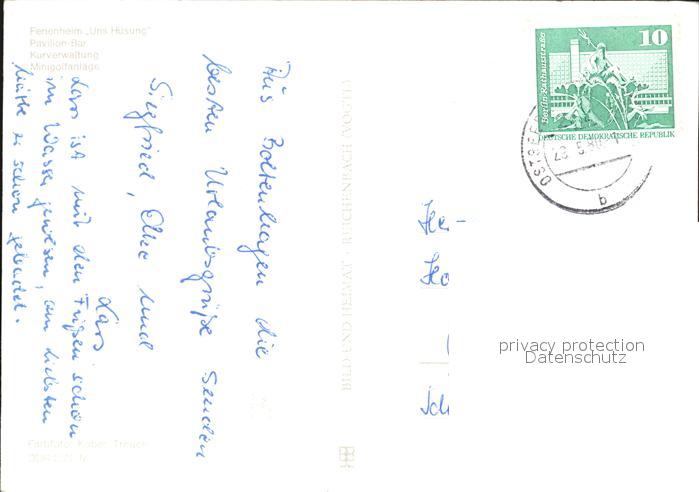 Ferienheim „Uns Hüsung"
Pavillon-Bar
Kurverwaltung
Minigolfanlage
Aus Boltenhagen die
besten Urlaubsgrüße senden
Siegfried, Elke und
Lars
Lars ist mit den Füßen schon
im Wasser gewesen, am liebsten
hätte er schon gebadet.
BILD UND HEIMAT · REICHENBACH (VOGTL)
10
Berlin, Rathausstraße
DEUTSCHE DEMOKRATISCHE REPUBLIK
b
privacy protection
Datenschutz
Farbfoto: